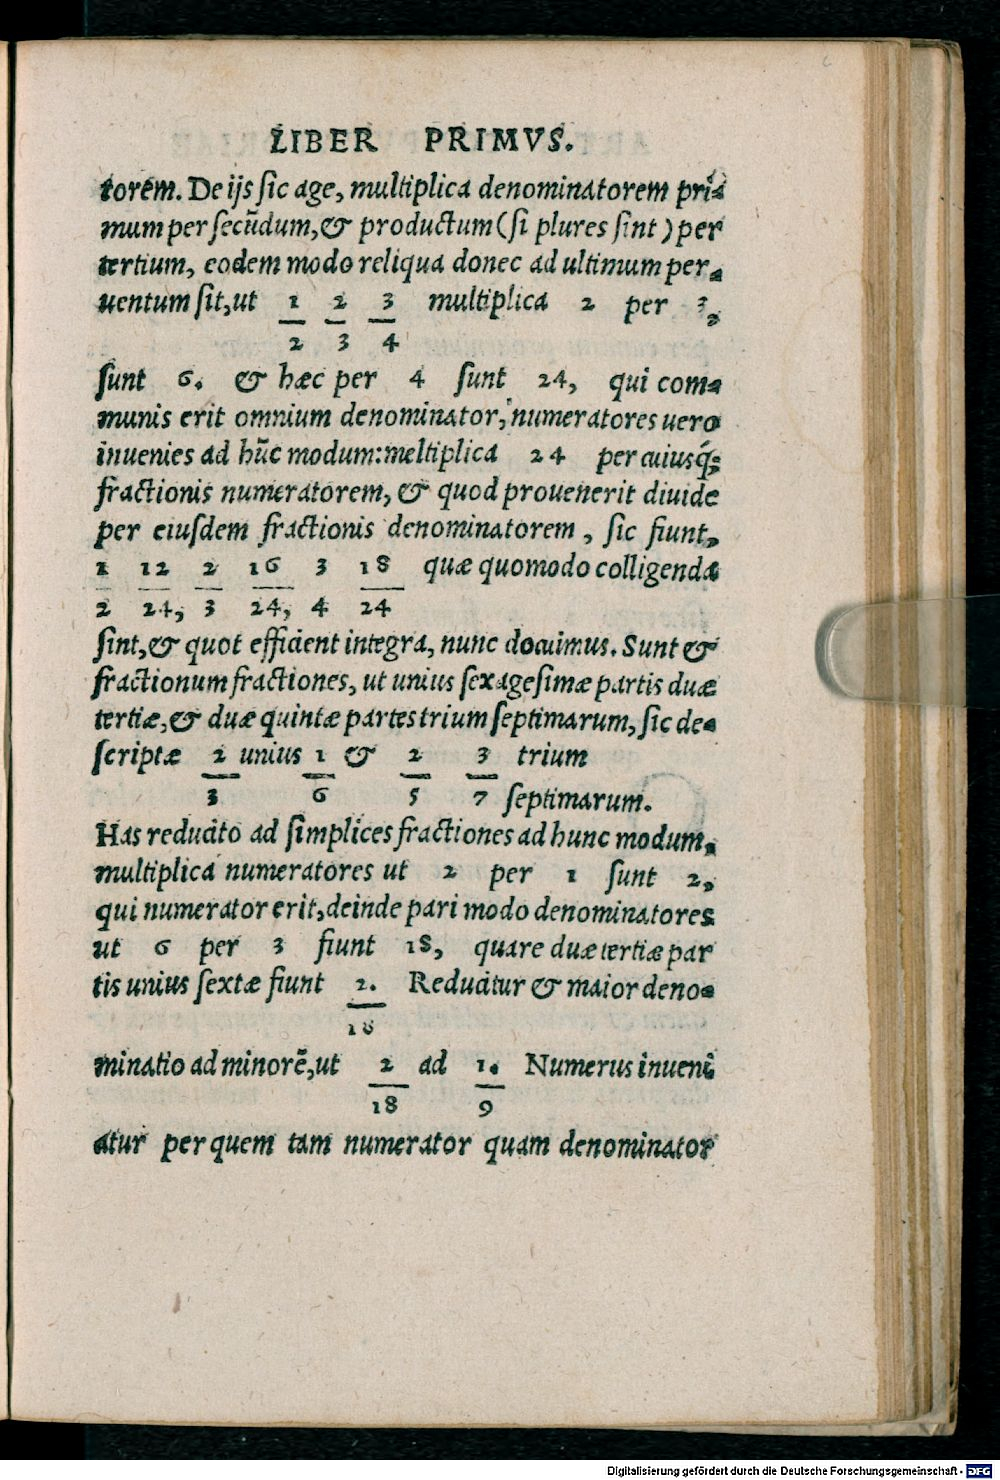 LIBER PRIMVS.
torem. De ijs sic age, multiplica denominatorem pri⸗
mum per secūdum, & productum (si plures sint) per
tertium, eodem modo reliqua donec ad ultimum per⸗
uentum sit, ut 1 2 3 multiplica 2 per 3,
2 3 4
sunt 6. & hæc per 4 sunt 24, qui com⸗
munis erit omnium denominator, numeratores uero
inuenies ad hūc modum: meltiplica 24 per cuiusq́;
fractionis numeratorem, & quod prouenerit diuide
per eiusdem fractionis denominatorem, sic fiunt,
1 12 2 16 3 18 quæ quomodo colligendæ
2 24, 3 24, 4 24
sint, & quot efficient integra, nunc docuimus. Sunt &
fractionum fractiones, ut unius sexagesimæ partis duæ
tertiæ, & duæ quintæ partes trium septimarum, sic de⸗
scriptæ 2 unius 1 & 2 3 trium
3 6 5 7 septimarum.
Has reducito ad simplices fractiones ad hunc modum,
multiplica numeratores ut 2 per 1 sunt 2,
qui numerator erit, deinde pari modo denominatores
ut 6 per 3 fiunt 18, quare duæ tertiæ par
tis unius sextæ fiunt 2. Reducitur & maior deno⸗
18
minatio ad minorē, ut 2 ad 1. Numerus inueni
18 9
atur per quem tam numerator quam denominator
Digitalisierung gefördert durch die Deutsche Forschungsgemeinschaft - DFG